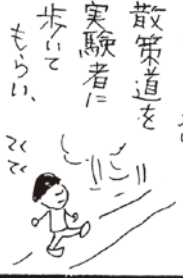 散策道を
実験者に
歩いて
もらい、
てくてく